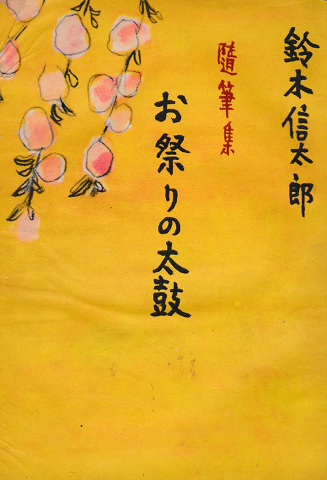 鈴木信太郎
隨筆集
お祭りの太鼓